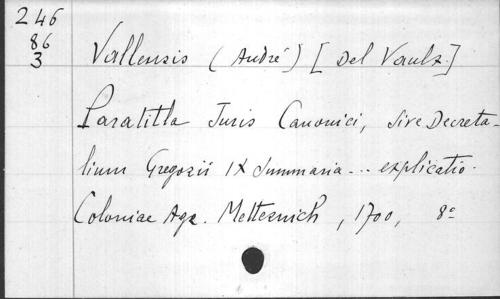 246
86
3
Vallensis (André) [Del Vaulx]
Paratitla Juris Canonici, sive Decreta-
lium Gregorii IX summaria... explicatio.
Coloniae Agr. Metternich, 1700, 8°